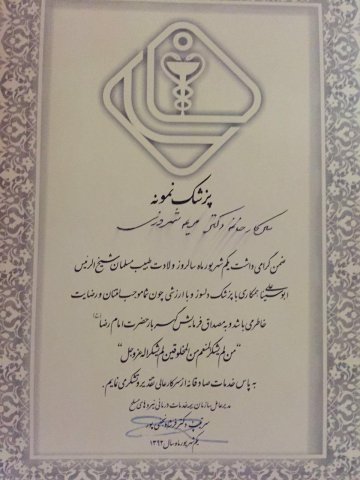 پزشک نمونه
سرکار خانم دکتر مریم شهروزی
ضمن گرامی داشت یکم شهریور ماه سالروز ولادت طبیب مسلمان شیخ الرئیس
ابوعلی سینا همکاری با پزشک دلسوز و با ارزشی چون شما موجب امتنان و رضایت
خاطر می باشد و به مصداق فرمایش گهربار حضرت امام رضا(ع)
"من لم یشکر المنعم من المخلوقین لم یشکر الله عزوجل"
به پاس خدمات صادقانه از سرکار عالی تقدیر و تشکر می نمایم.
مدیرعامل سازمان بیمه خدمات درمانی نیروهای مسلح
سرتیپ دکتر
یکم شهریور ماه سال ۱۳۹۲